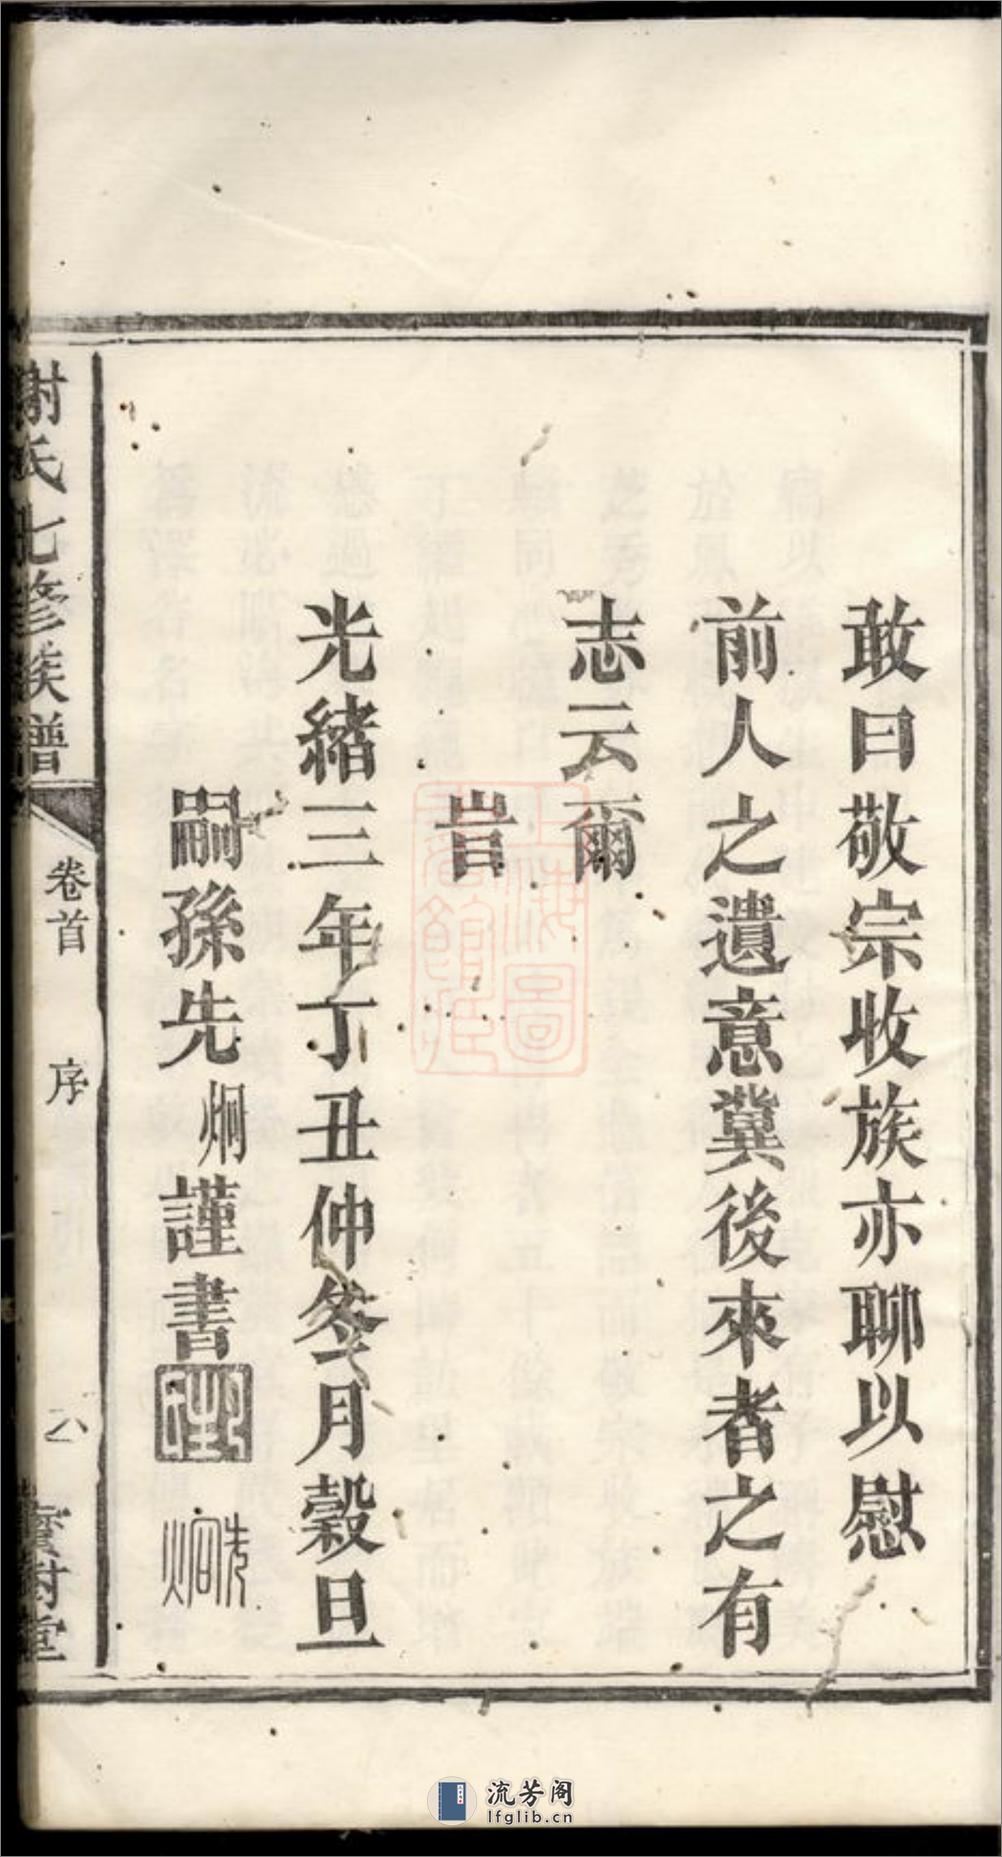 敢曰敬宗收族亦聊以慰
前人之遺意冀後來者之有
志云爾
旹
光緒三年丁丑仲冬月穀旦
嗣孫先炯謹書
先炯
謝氏七修族譜
卷首
序
六
寶樹堂
上海圖書館藏
流芳阁
lfglib.cn